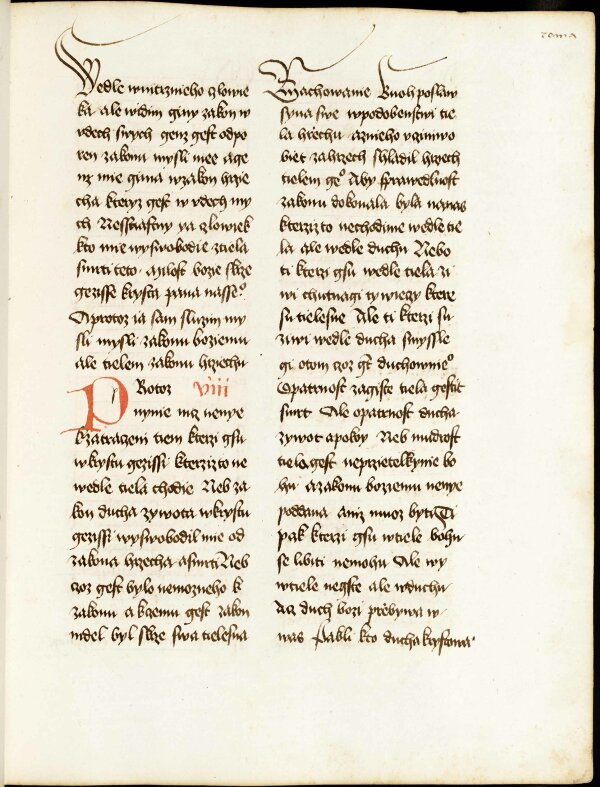 roma
Wedle wnitrznieho czlowie
ka ale widim giny zakon w
vdech swych genz gest odpo
ren zakonu mysli mee a ge
nz mie gima w zakon hrzie
cha kteryz gest w vdech my
ch Nesstiastny ya czlowiek
kto mie wyswobodie z tiela
smrti teto a milost bozie skrze
gezisse krysta pana nasseº
A protoz ia sam sluzim my
sli mysli zakonu boziemu
ale tielem zakonu hrziechu
PRotoz viii
nynie nicz nenye
k zatraczeni tiem kterzi gsu
w krystu gezissi kterzizto ne
wedle tiela chodie Neb za
kon ducha zywota w krystu
gezissi wyswobodil mie od
zakona hrzecha a smrti Neb
czoz gest bylo nemozneho k
zakonu a k czemu gest zakon
mdel byl skrze swa tielesna
Zachowanie Buoh poslaw
syna swe w podobenstwi tie
la hrzechu a z nieho vcziniwo
biet za hrzech shladil hrzech
tielem geº Aby sprawedlnost
zakonu dokonala byla na nas
kterzizto nechodime wedle tie
la ale wedle duchu Nebo
ti kterzi gsu wedle tiela zi
wi chutnagi ty wieczy ktere
su tielesne Ale ti kterzi su
ziwi wedle ducha smyssle
gi o tom czoz gt duchownieº
Opatrnost zagiste tiela gestit
smrt Ale opatrnost ducha
zywot a pokoy Neb mudrost
tiela gest neprzietelkynie bo
hu a zakonu boziemu nenye
poddana aniz muoz byti Ti
pak kterzi gsu w tiele bohu
se libiti nemohu Ale wy
w tiele negste ale w duchu
Acz duch bozi przebywa w
was Pakli kto ducha krystowa